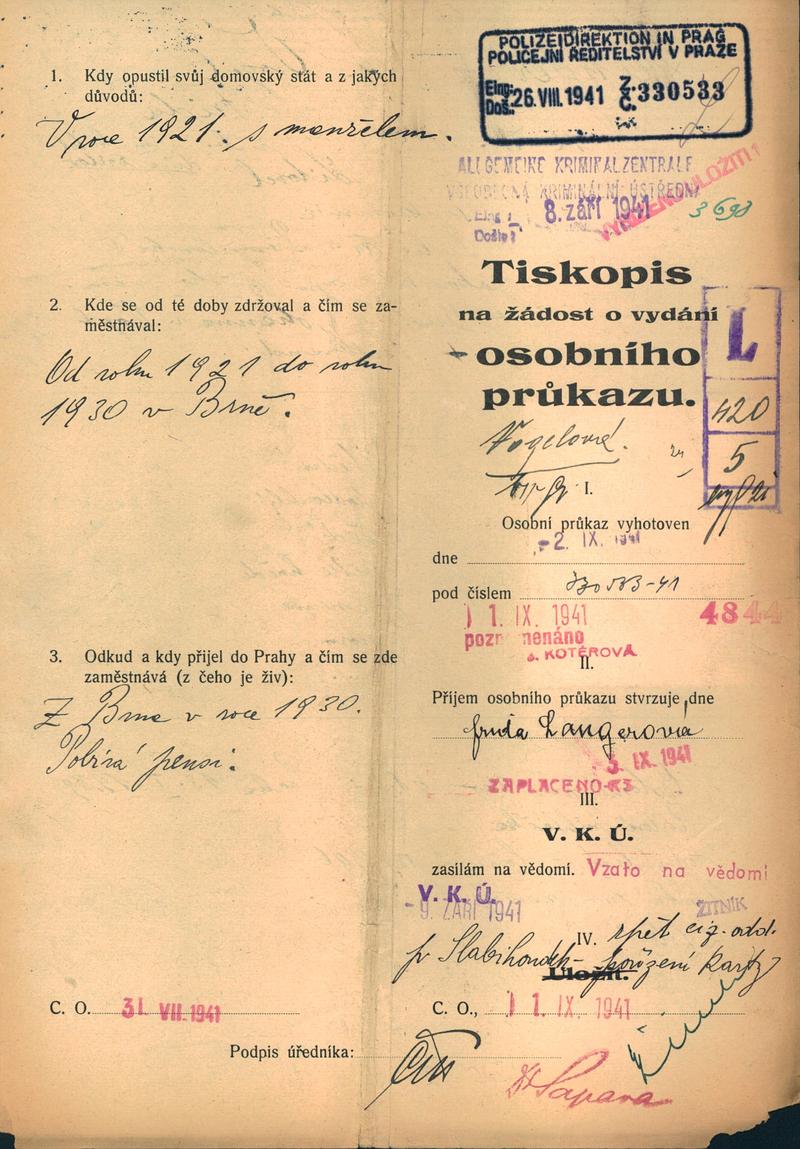 1. Kdy opustil svůj domovský stát a z jakých
důvodů:
V roce 1921. s manželem.
2. Kde se od té doby zdržoval a čím se za-
městnával:
Od roku 1921 do roku
1930 v Brně.
3. Odkud a kdy přijel do Prahy a čím se zde
zaměstnává (z čeho je živ):
Z Brna v roce 1930.
Pobírá pensi.
C. O. 31. VII. 1941
Podpis úředníka:
POLIZEIDIREKTION IN PRAG
POLICEJNÍ ŘEDITELSTVÍ V PRAZE
Eing.: Došlo: 26. VIII. 1941 Z. Č. 330533
ALLGEMEINE KRIMINALZENTRALE
VŠEOBECNÁ KRIMINÁLNÍ ÚSTŘEDNA
Eing.: Došlo: 8. září 1941
3690
Tiskopis
na žádost o vydání
osobního
průkazu.
L
420
5
Vogelová.
I.
Osobní průkaz vyhotoven
dne -2. IX. 1941
pod číslem
11. IX. 1941 4844
poznamenáno
KOTĚROVÁ
II.
Příjem osobního průkazu stvrzuje dne
Langerová
3. IX. 1941
ZAPLACENO K3
III.
V. K. Ú.
zasílám na vědomí. Vzato na vědomí
V. K. Ú.
-9. ZÁŘÍ 1941 ŽITNÍK
IV. zpět ciz. odd.
Uložit.
C. O., 11. IX. 1941